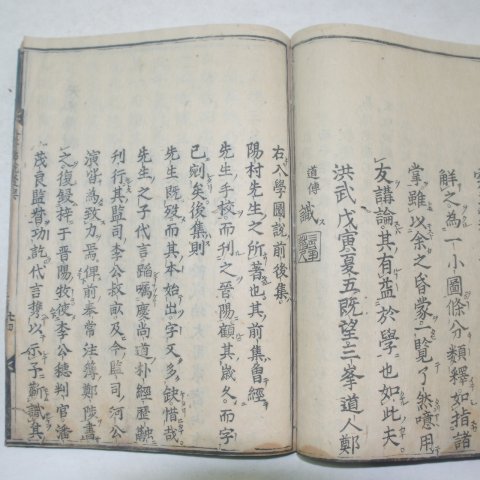 解之為一小圖條分類釋如指諸
掌雖以余之昏蒙一覧了然噫用
友講論其有益於學也如此夫
洪武戊寅夏五既望三峯道人鄭
道傳 識
右入學圖說前後集
陽村先生之所著也其前集曽經
先生手校而刊之晉陽顧其歲久而字
已刓矣後集則
先生既歿而其本始出字又多缺惜哉
先生之子代言蹈嘱慶尚道朴經歷融
刊行其監司李公叔畝及今監司河公
演皆為致力焉俾前奉常注簿鄭陟書
之復鋟梓于晉陽牧使李公穂判官潘
茂良監督功訖代言甞以示予蕲識其